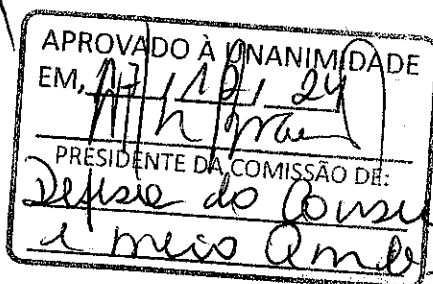 APROVADO À UNANIMIDADE
EM, 17 / 12 / 24
PRESIDENTE DA COMISSÃO DE:
Defesa do Consu
e meio Amb